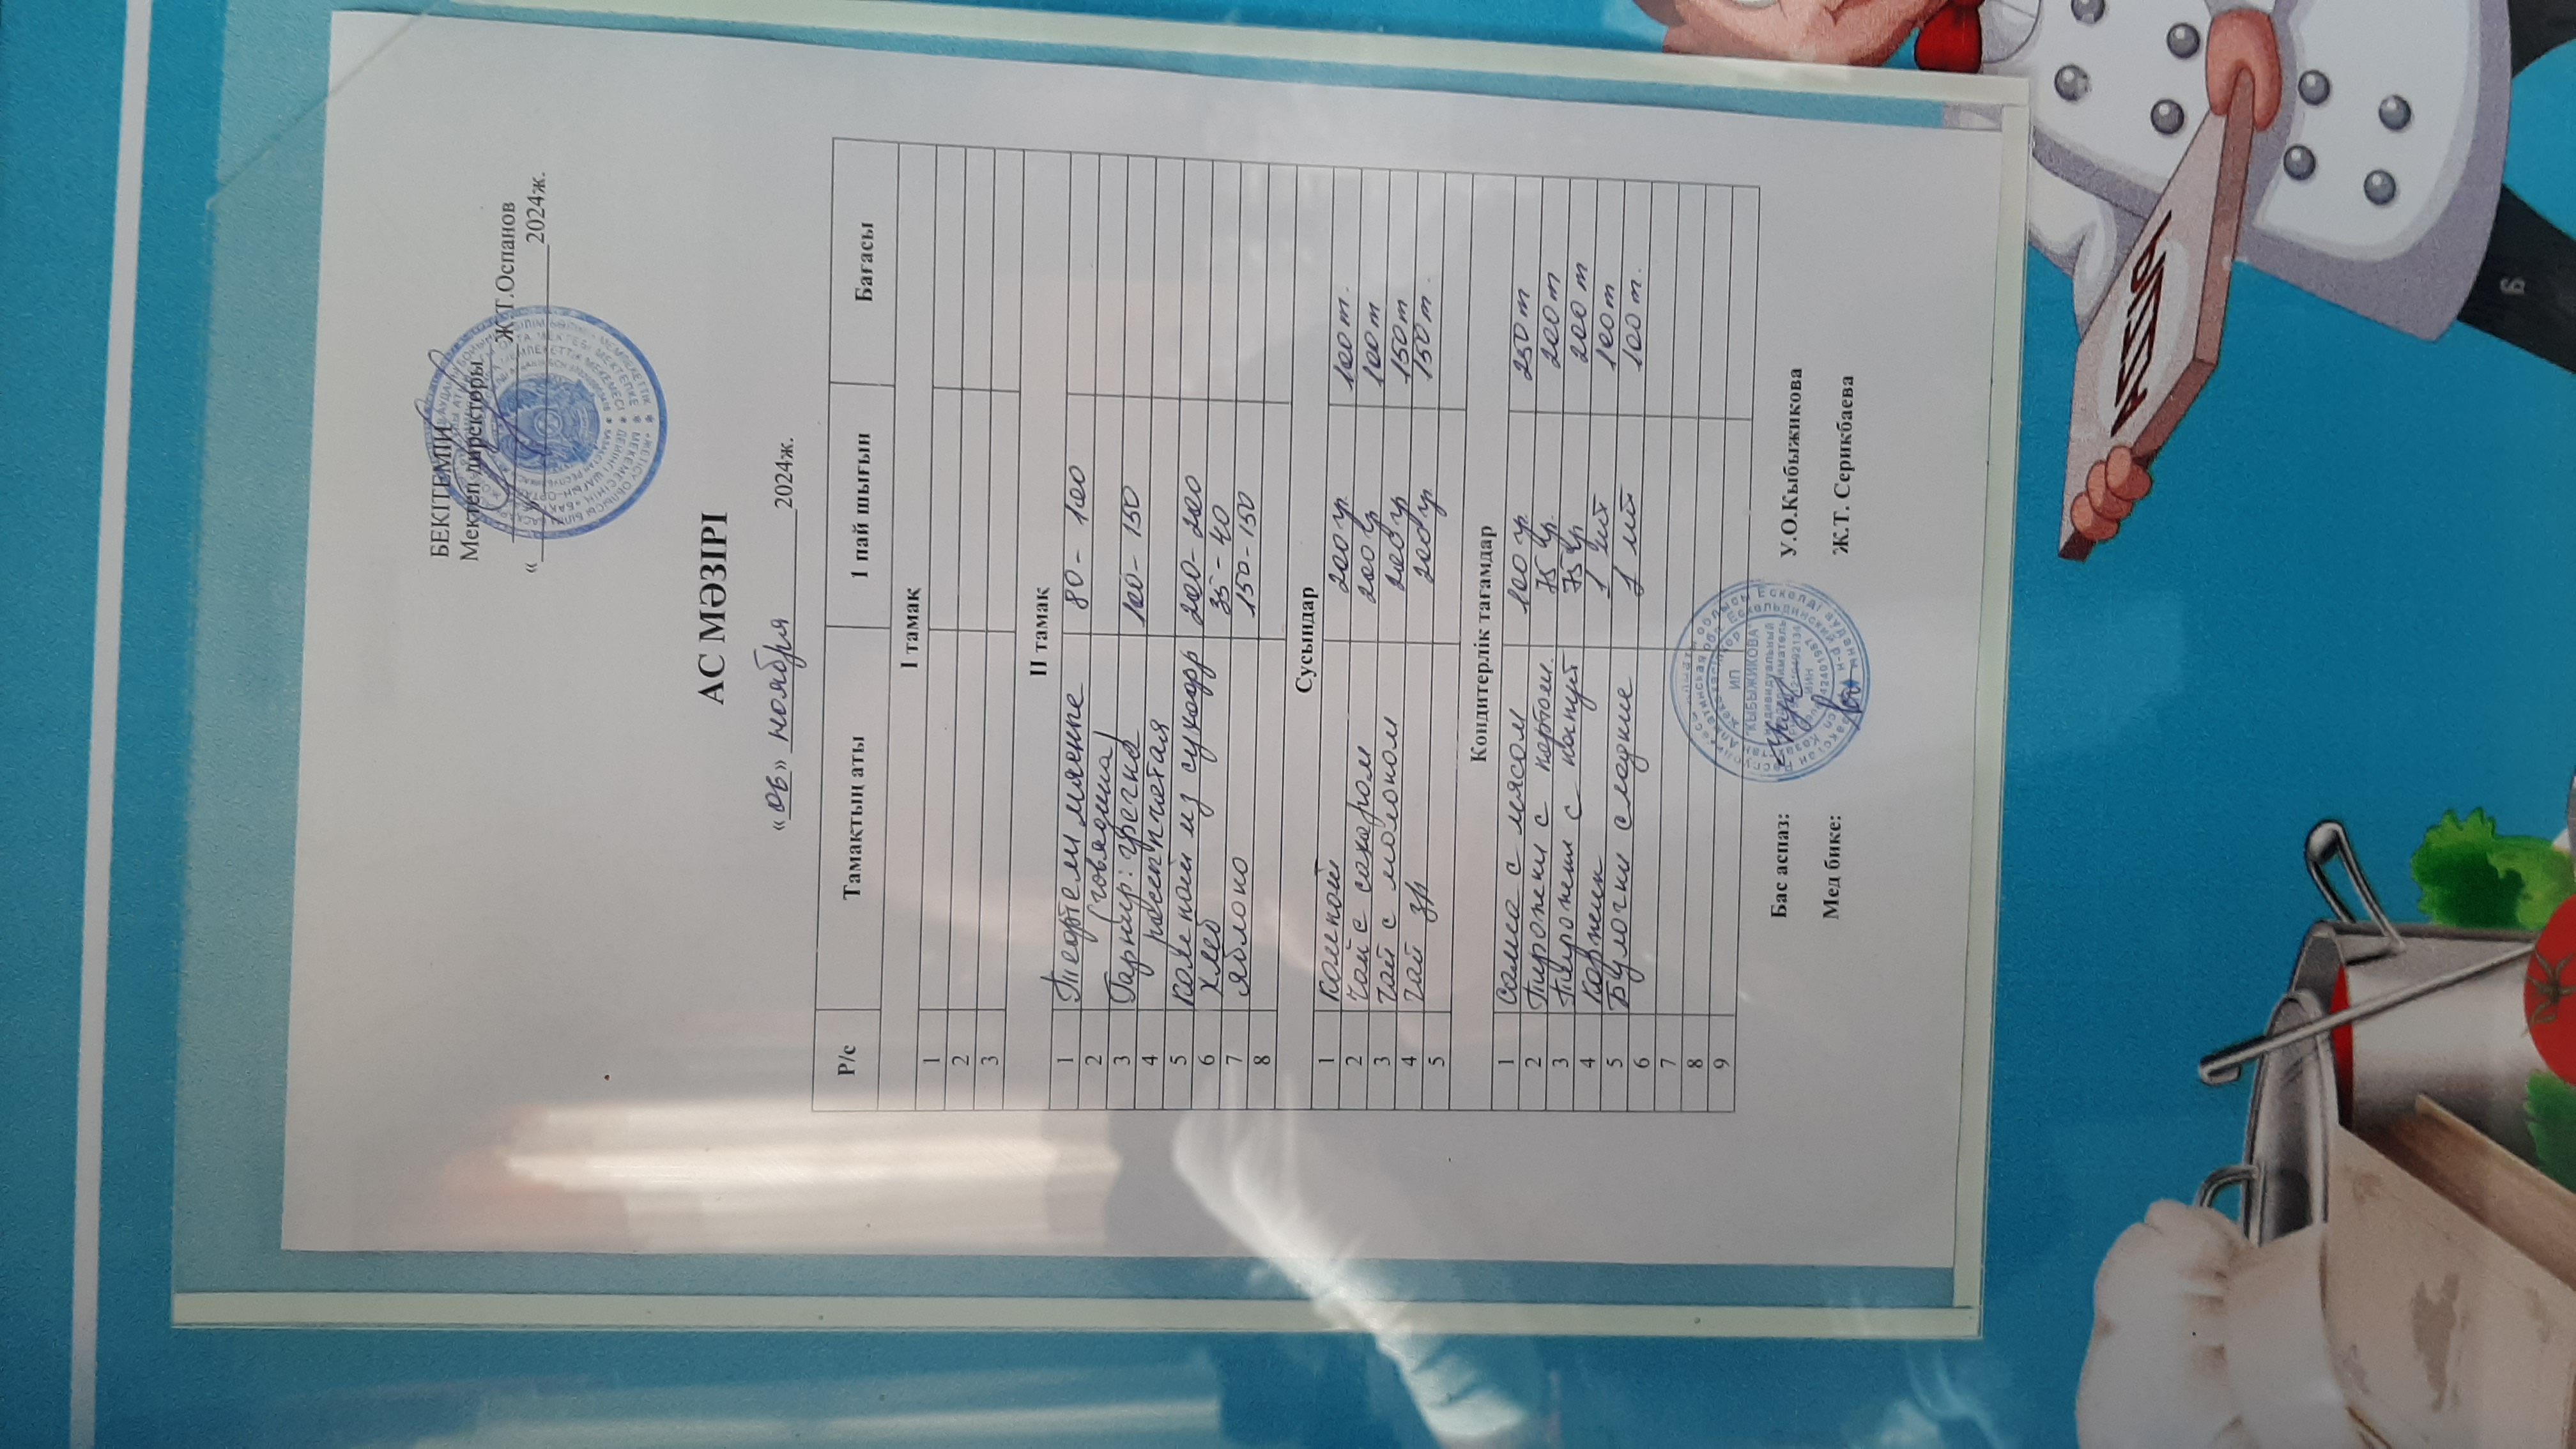 БЕКІТЕМІН
Мектеп директоры
Ж.Т.Оспанов
«____» ____ 2024ж.
АС МӘЗІРІ
«06» ноября 2024ж.
Р/с Тамақтың аты 1 пай шығын Бағасы
І тамақ
1
2
3
ІІ тамақ
1 Тефтели мясные 80 - 100
2 (говядина)
3 Гарнир: гречка 100 - 150
4 рассыпчатая
5 Компот из сухофр 200 - 200
6 хлеб 35 - 40
7 яблоко 150 - 150
8
Сусындар
1 Компот 200 гр. 100 т.
2 Чай с сахаром 200 гр 100 т
3 Чай с молоком 200 гр 150 т
4 Чай 200 гр 150 т.
5
Кондитерлік тағамдар
1 Самса с мясом 100 гр. 250 т
2 Пирожки с картош. 75 гр. 200 т
3 Пирожки с капуст 75 гр 200 т
4 Коржик 1 шт 100 т
5 Булочки сладкие 1 шт 100 т.
6
7
8
9
ИП
"КЫБЫЖИКОВА"
Бас аспаз: У.О.Кыбыжикова
Мед бике: Ж.Т. Серикбаева
PIZZA